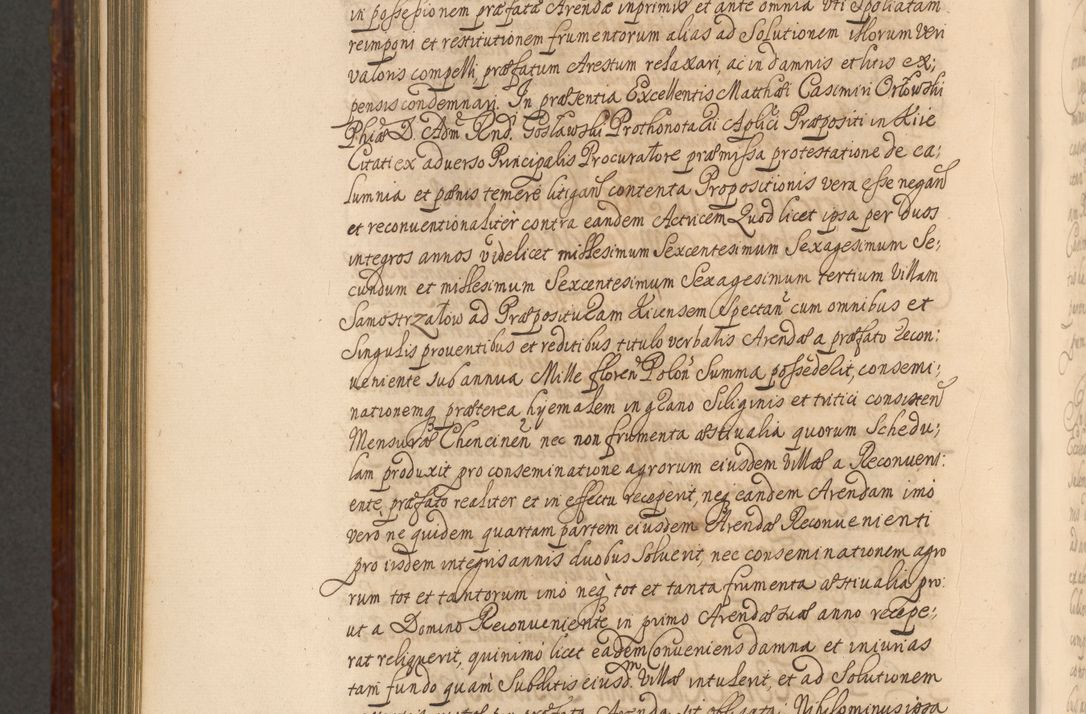 in possessionem præfatæ Arendæ inprimis et ante omnia uti Spoliatam
reimponi et restitutionem frumentorum alias ad Solutionem illorum Veri
valoris compelli, præfatum Arestum relaxari, ac in damnis et litis ex;
pensis condemnari. In præsentia Excellentis Matthæi Casimiri Orłowski
Phiæ D. Adm. Rnd. Gosławski Prothonotarii Aplici Præpositi in Kiie
Citati ex adverso Principalis Procuratore præmissa protestatione de ca;
lumnia et pænis temere litigan contenta Propositionis vera esse negan
et reconventionaliter contra eandem Actricem Quod licet ipsa per duos
integros annos videlicet millesimum Sexcentesimum Sexagesimum Se;
cundum et millesimum Sexcentesimum Sexagesimum tertium Villam
Samostrzałow ad Præposituram Kiiensem Spectan cum omnibus et
Singulis proventibus et reditibus titulo verbalis Arendæ a præfato Recon:
veniente sub annua Mille floren Polon Summa possedelit, consemi;
nationemq præterea hyemalem in grano Siliginis et tritici consisten
Mensuræ Chencinen nec non frumenta æstivalia quorum Schedu;
lam produxit pro conseminatione agrorum eiusdem Villæ a Reconveni:
ente præfato realiter et in effectu receperit, neq eandem Arendam imo
vero ne quidem quartam partem eiusdem Arendæ Reconvenienti
pro iisdem integris annis duobus Solverit, nec conseminationem agro
rum tot et tantorum imo neq tot et tanta frumenta æstivalia pro:
ut a Domino Reconveniente in primo Arendæ suæ anno recepe;
rat reliquerit, quinimo licet eadem Conveniens damna et iniurias
tam fundo quam Subditis eiusdm Villæ intulerit, et ad Solutionem
præfata Arenda sit obligata: Nihilominus ipsa